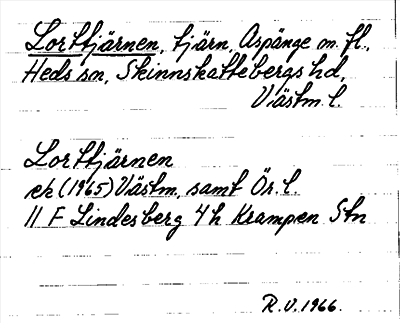 Lorttjärnen, tjärn, Aspänge m. fl.,
Heds sn, Skinnskattebergs hd,
Västm. l.
Lorttjärnen
ek (1965) Västm. samt Ör. l.
11 F Lindesberg 4 h Krampen Stn
R.V. 1966.